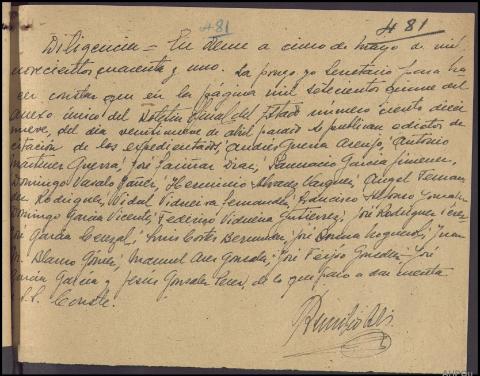 481 481
Diligencia = En Orense a cinco de mayo de mil
novecientos cuarenta y uno. La pongo yo Secretario para ha
cer constar que en la página mil setecientos nueve del
anexo único del Boletín Oficial del Estado número ciento dieci
nueve, del día veintinueve de abril pasado se publican edictos de
citación de los expedientados, Andrés Guerra Arenjo, Antonio
Martínez Guerra, José Fariñas Díaz, Pannacio García Jiménez,
Domingo Vasalo Yáñez, Herminio Álvarez Vázquez, Ángel Fernan
dez Rodríguez, Vidal Vidueira Fernández, Francisco Alfonso González
Domingo García Vicente, Federico Vidueira Gutierrez, José Rodríguez Perez
José García González, Luis Cortes Bermúdez, José Dorna Nogueiras, Juan
M. Blanco Gómez, Manuel González, José Feijóo González, José
García García y Jesús González Perez, de lo que paso a dar cuenta
S.S. Conste.